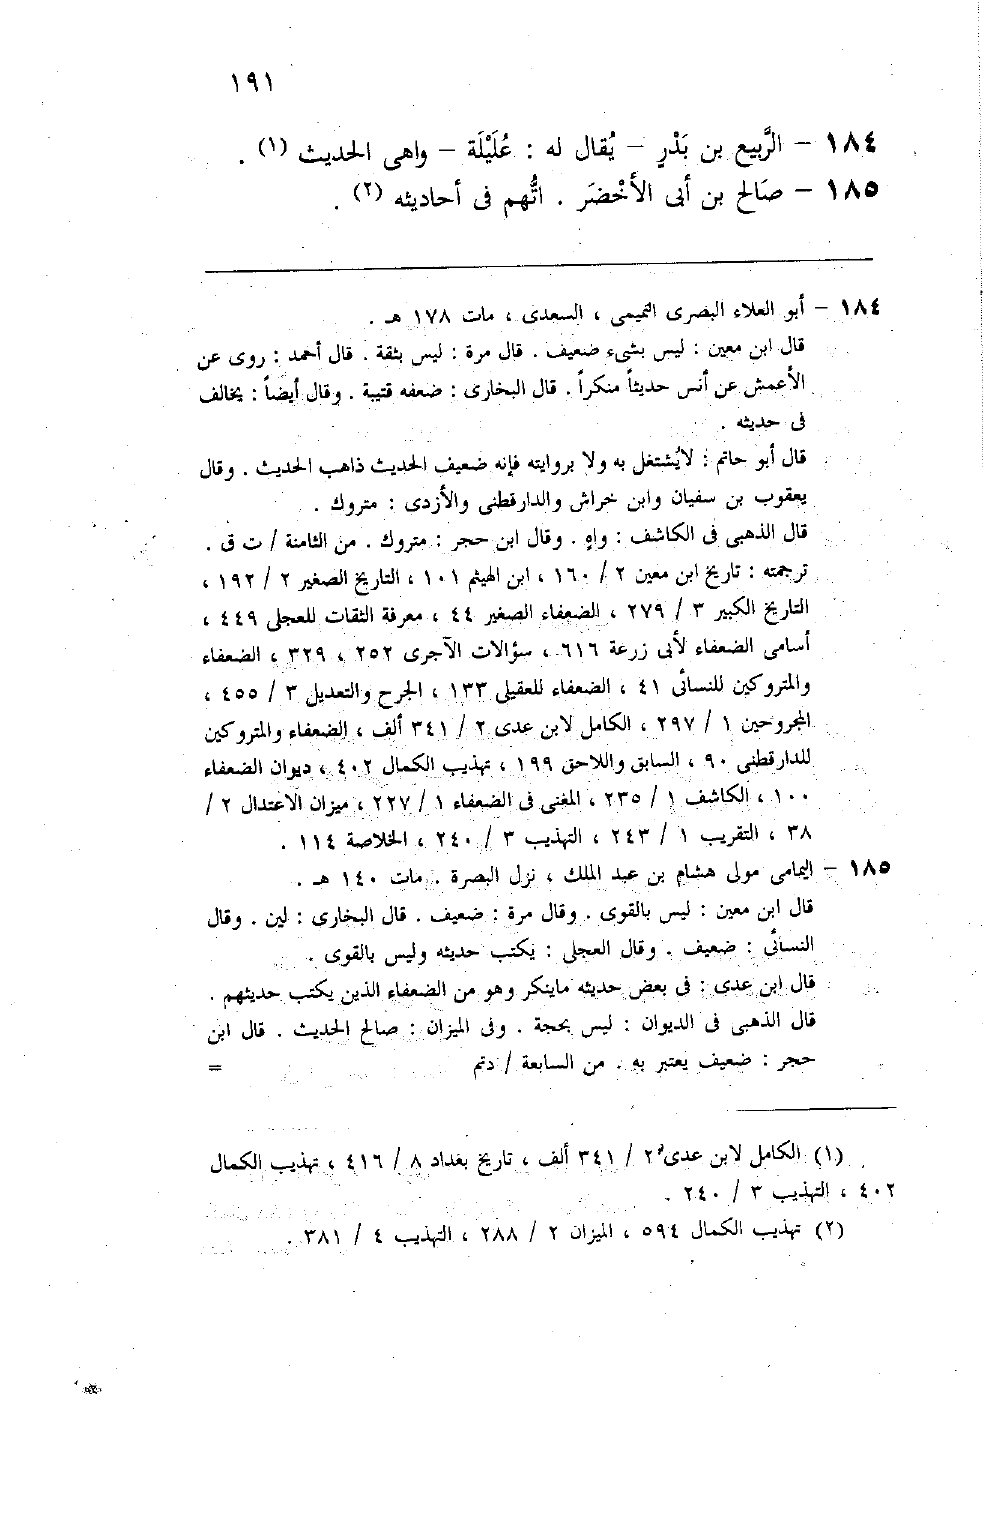 ١٩١
١٨٤ – الرَّبيع بن بَدْرٍ – يُقال له : عُلَيْلَة – واهى الحديث (١) .
١٨٥ – صَالح بن أبى الأَخْضَر . اتُّهم فى أحاديثه (٢) .
١٨٤ – أبو العلاء البصرى التميمى ، السعدى ، مات ١٧٨ هـ .
قال ابن معين : ليس بشىء ضعيف . قال مرة : ليس بثقة . قال أحمد : روى عن
الأعمش عن أنس حديثاً منكراً . قال البخارى : ضعفه قتيبة . وقال أيضاً : يخالف
فى حديثه .
قال أبو حاتم : لايُشتغل به ولا بروايته فإنه ضعيف الحديث ذاهب الحديث . وقال
يعقوب بن سفيان وابن خراش والدارقطنى والأزدى : متروك .
قال الذهبى فى الكاشف : واهٍ . وقال ابن حجر : متروك . من الثامنة / ت ق .
ترجمته : تاريخ ابن معين ٢ / ١٦٠ ، ابن الهيثم ١٠١ ، التاريخ الصغير ٢ / ١٩٢ ،
التاريخ الكبير ٣ / ٢٧٩ ، الضعفاء الصغير ٤٤ ، معرفة الثقات للعجلى ٤٤٩ ،
أسامى الضعفاء لأبى زرعة ٦١٦ ، سؤالات الآجرى ٢٥٢ ، ٣٢٩ ، الضعفاء
والمتروكين للنسائى ٤١ ، الضعفاء للعقيلى ١٣٣ ، الجرح والتعديل ٣ / ٤٥٥ ،
المجروحين ١ / ٢٩٧ ، الكامل لابن عدى ٢ / ٣٤١ ألف ، الضعفاء والمتروكين
للدارقطنى ٩٠ ، السابق واللاحق ١٩٩ ، تهذيب الكمال ٤٠٢ ، ديوان الضعفاء
١٠٠ ، الكاشف ١ / ٢٣٥ ، المغنى فى الضعفاء ١ / ٢٢٧ ، ميزان الاعتدال ٢ /
٣٨ ، التقريب ١ / ٢٤٣ ، التهذيب ٣ / ٢٤٠ ، الخلاصة ١١٤ .
١٨٥ – اليمامى مولى هشام بن عبد الملك ، نزل البصرة . مات ١٤٠ هـ .
قال ابن معين : ليس بالقوى . وقال مرة : ضعيف . قال البخارى : لين . وقال
النسائى : ضعيف . وقال العجلى : يكتب حديثه وليس بالقوى .
قال ابن عدى : فى بعض حديثه ماينكر وهو من الضعفاء الذين يكتب حديثهم .
قال الذهبى فى الديوان : ليس بحجة . وفى الميزان : صالح الحديث . قال ابن
حجر : ضعيف يعتبر به . من السابعة / دتم =
(١) الكامل لابن عدى ٢ / ٣٤١ ألف ، تاريخ بغداد ٨ / ٤١٦ ، تهذيب الكمال
٤٠٢ ، التهذيب ٣ / ٢٤٠ .
(٢) تهذيب الكمال ٥٩٤ ، الميزان ٢ / ٢٨٨ ، التهذيب ٤ / ٣٨١ .